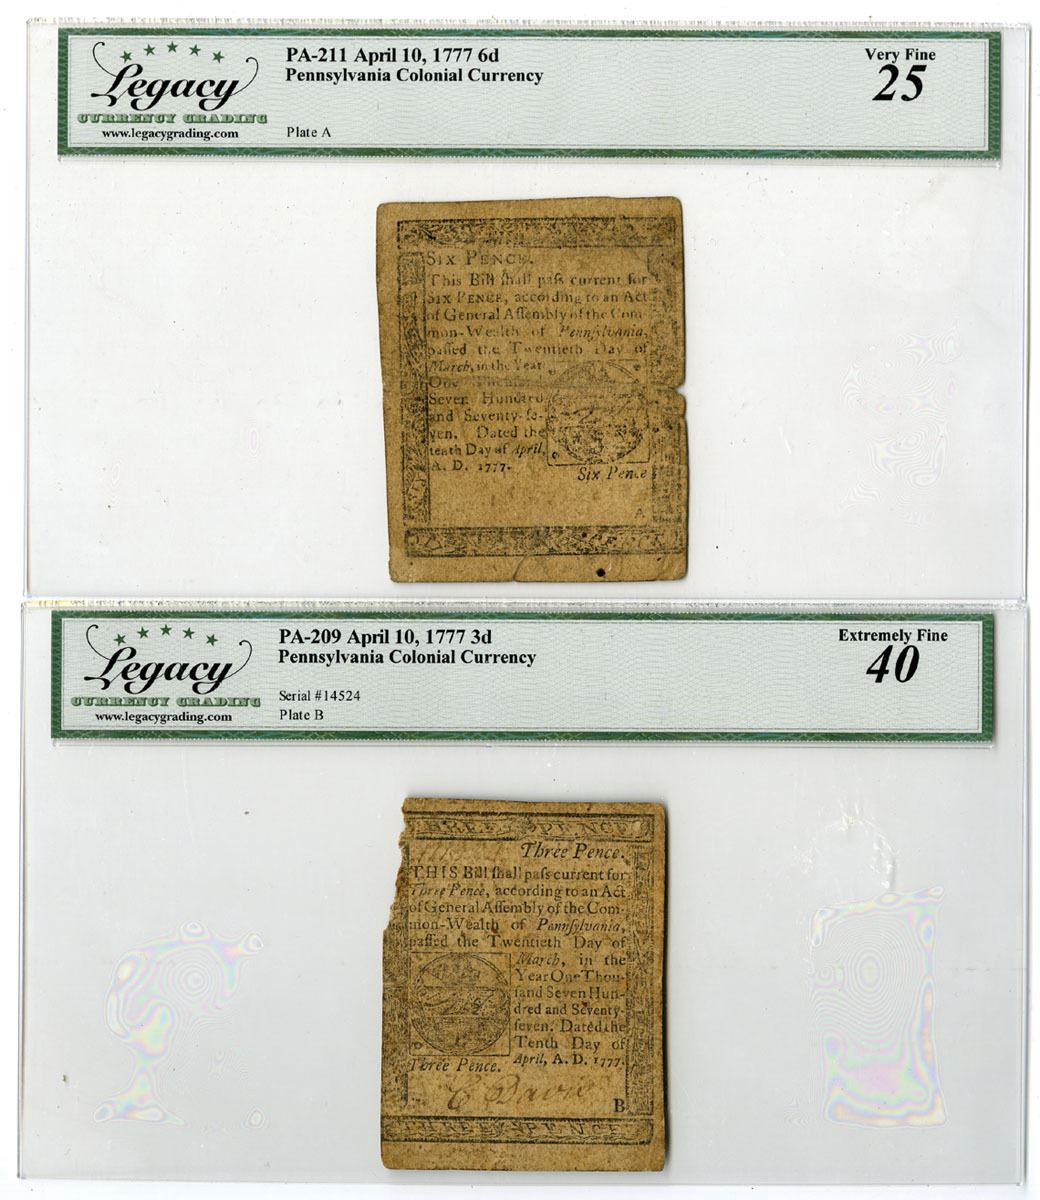 Legacy
CURRENCY GRADING
www.legacygrading.com
PA-211 April 10, 1777 6d
Pennsylvania Colonial Currency
Plate A
Very Fine
25
SIX PENCE.
This Bill ſhall paſs current for
SIX PENCE, according to an Act
of General Aſſembly of the Com-
mon-Wealth of Pennſylvania,
paſſed the Twentieth Day of
March, in the Year
One
Seven Hundred
and Seventy-ſe-
ven. Dated the
tenth Day of April,
A. D. 1777.
Six Pence
A
PENCE
Legacy
CURRENCY GRADING
www.legacygrading.com
PA-209 April 10, 1777 3d
Pennsylvania Colonial Currency
Serial #14524
Plate B
Extremely Fine
40
THREE PENCE
Three Pence.
THIS Bill ſhall paſs current for
Three Pence, according to an Act
of General Aſſembly of the Com-
mon-Wealth of Pennſylvania,
paſſed the Twentieth Day of
March, in the
Year One Thou-
ſand Seven Hun-
dred and Seventy-
ſeven. Dated the
Tenth Day of
April, A. D. 1777.
Three Pence.
C Davis
B
THREE PENCE